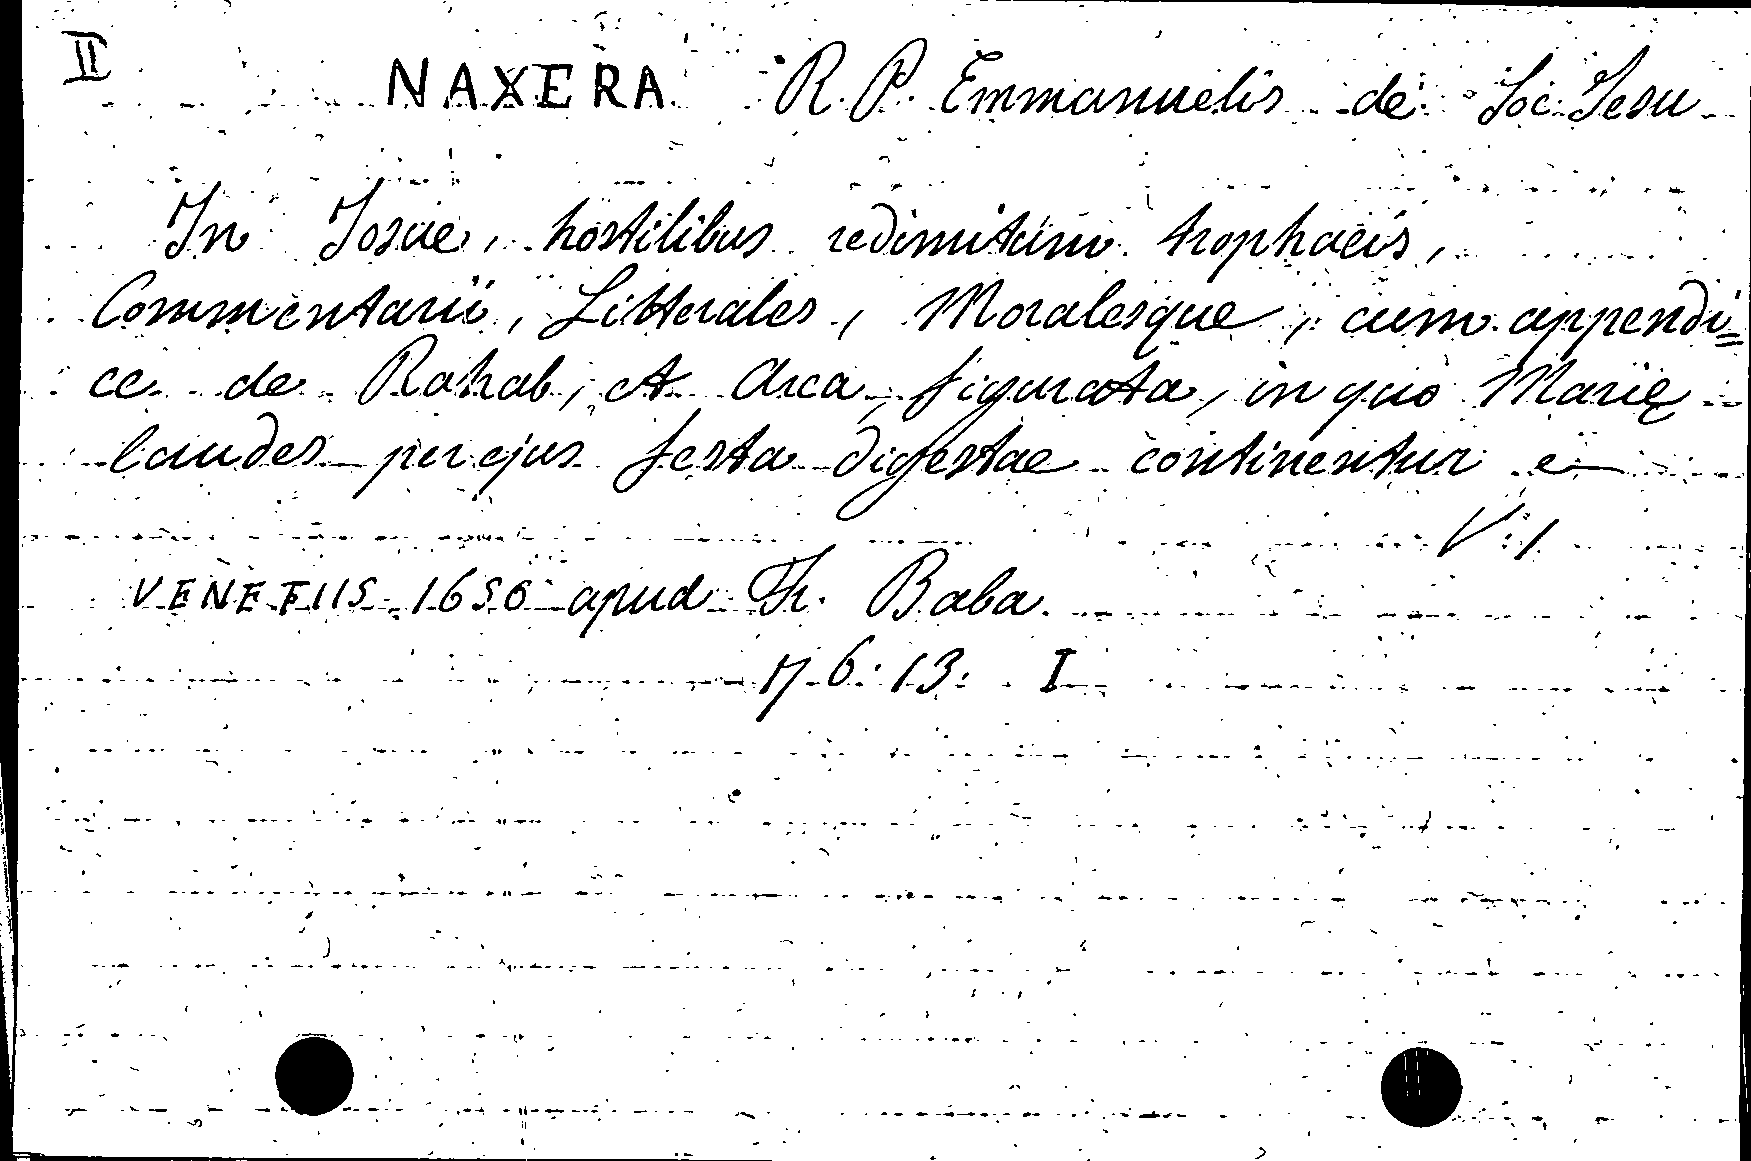 II
NAXERA R. P. Emmanuelis de Soc. Jesu
In Josue, hostilibus redimitum trophaeis,
Commentarii, Litterales, Moralesque, cum appendi=
ce de Rahab, et Arca figurata, in quo Marię
laudes per ejus festa digestae continentur
V: 1
VENETIIS 1650 apud Fr. Baba.
17. 6: 13: I